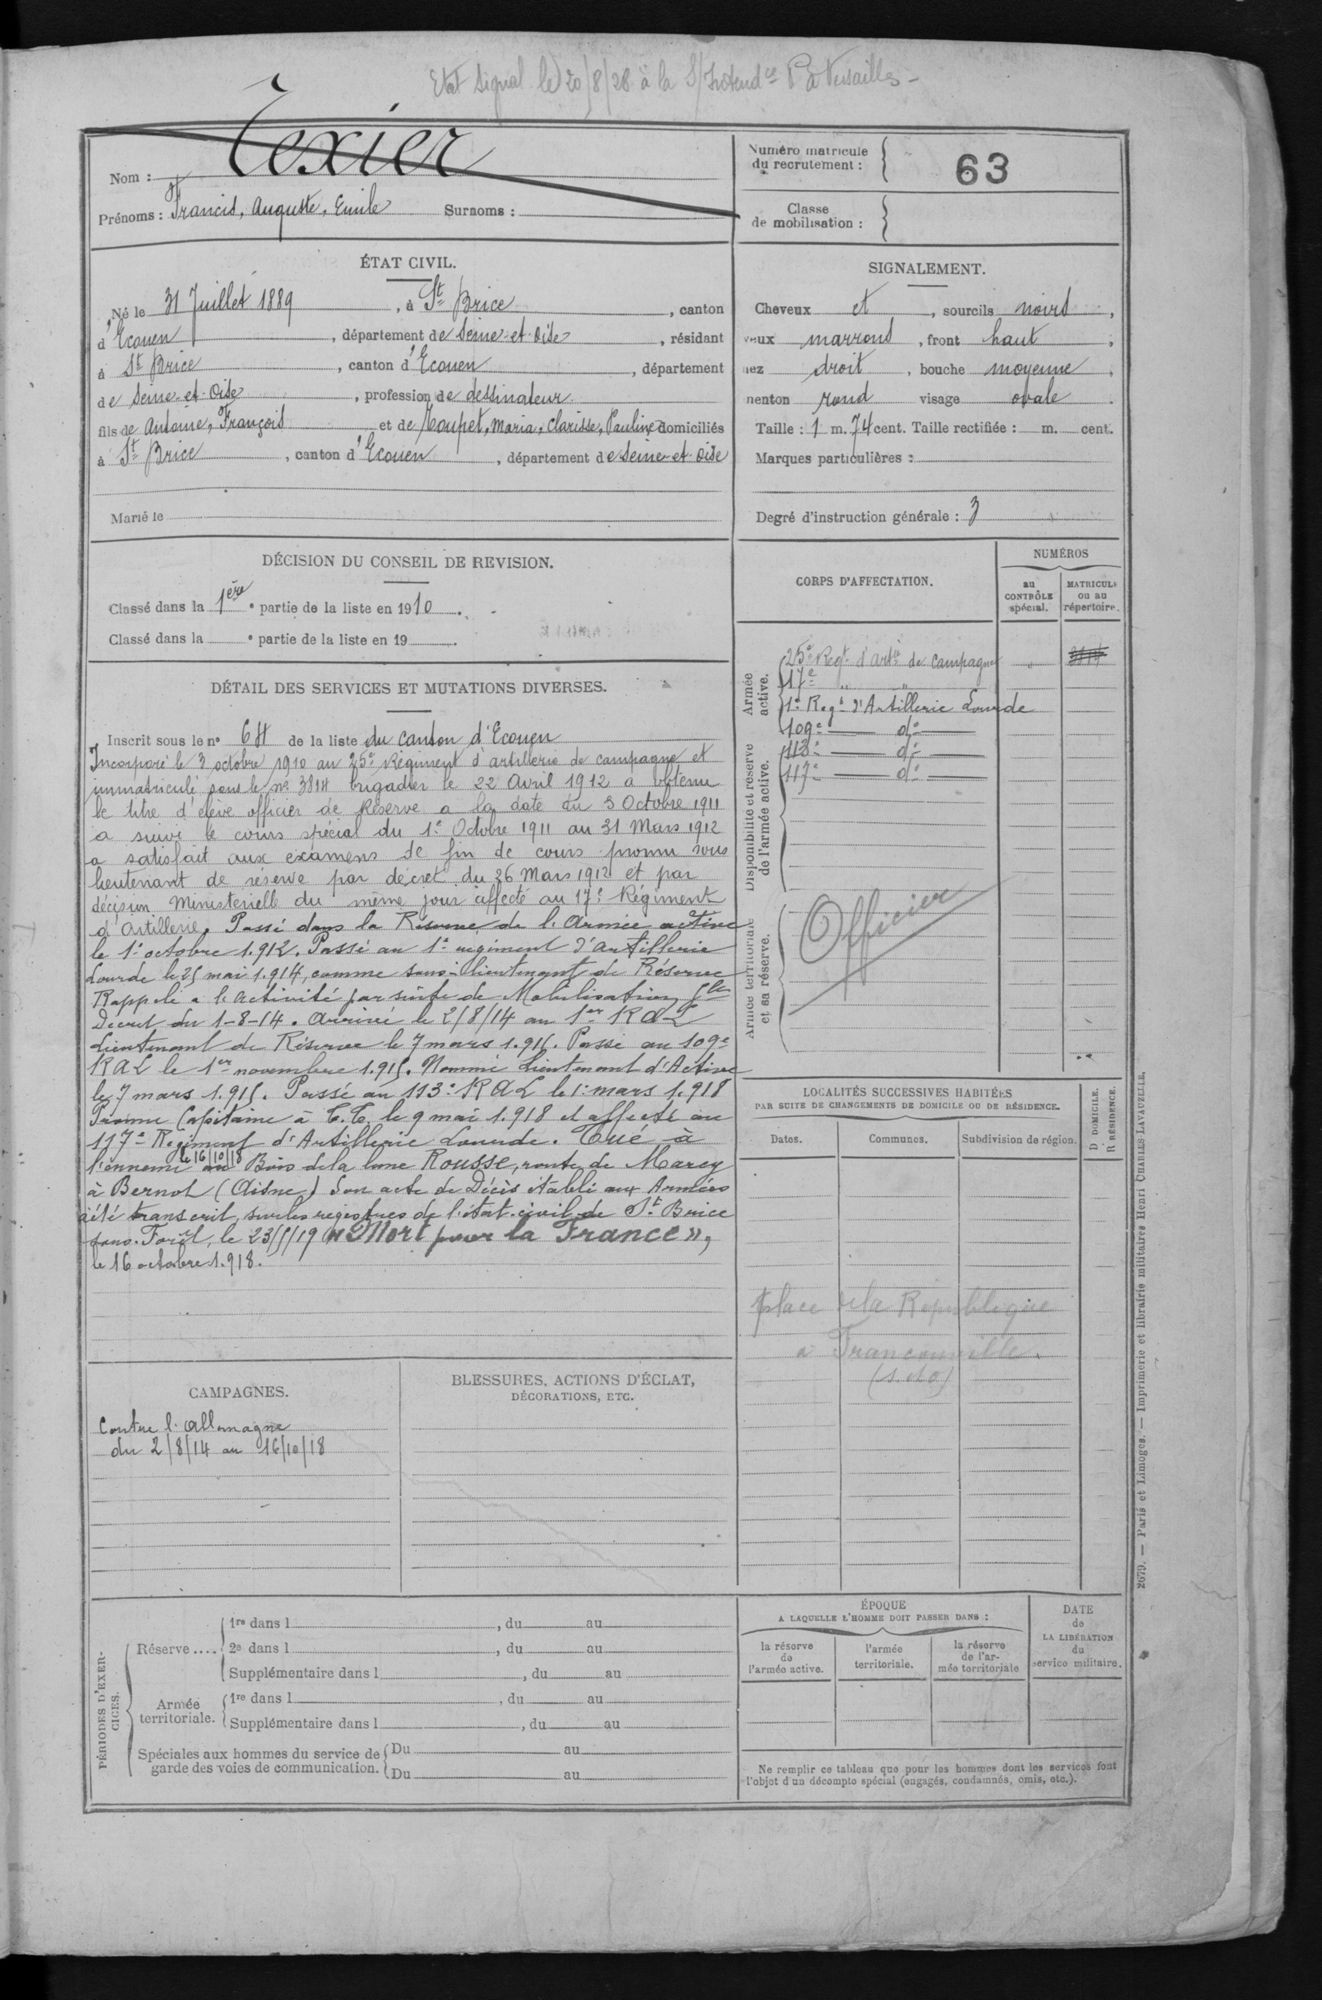 Etat signal. le 20/8/28 à la S/Intend ce à Versailles -
Nom : Texier
Prénoms : Francis, Auguste, Emile Surnoms :
Numéro matricule
du recrutement : 63
Classe
de mobilisation :
ÉTAT CIVIL.
Né le 31 Juillet 1889, à St Brice, canton
d'Ecouen, département de Seine-et-Oise, résidant
à St Brice, canton d'Ecouen, département
de Seine-et-Oise, profession de dessinateur
fils de Antoine, François et de Toupet, Maria, Clarisse, Pauline domiciliés
à St Brice, canton d'Ecouen, département de Seine-et-Oise
Marié le
SIGNALEMENT.
Cheveux et, sourcils noirs,
yeux marrons, front haut,
nez droit, bouche moyenne,
menton rond visage ovale.
Taille : 1 m. 74 cent. Taille rectifiée : m. cent.
Marques particulières :
Degré d'instruction générale : 3
DÉCISION DU CONSEIL DE REVISION.
Classé dans la 1ère e partie de la liste en 1910.
Classé dans la e partie de la liste en 19
DÉTAIL DES SERVICES ET MUTATIONS DIVERSES.
Inscrit sous le no 64 de la liste du canton d'Ecouen
Incorporé le 3 octobre 1910 au 25e Régiment d'artillerie de campagne et
immatriculé sous le no 3814 brigadier le 22 Avril 1912 a obtenu
le titre d'élève officier de Réserve a la date du 3 Octobre 1911
a suivi le cours spécial du 1er Octobre 1911 au 31 Mars 1912
a satisfait aux examens de fin de cours promu sous
lieutenant de réserve par décret du 26 Mars 1912 et par
décision Ministerielle du même jour affecté au 17e Régiment
d'artillerie. Passé dans la Réserve de l'Armée active
le 1er octobre 1.912. Passé au 1er régiment d'Artillerie
Lourde le 25 mai 1.914, comme sous-lieutenant de Réserve
Rappelé à l'activité par suite de Mobilisation Gle
Décret du 1-8-14. Arrivé le 2/8/14 au 1er RAL
Lieutenant de Réserve le 7 mars 1.915. Passé au 109e
RAL le 1er novembre 1.915. Nommé Lieutenant d'Active
le 7 mars 1.915. Passé au 113e RAL le 1er mars 1.918
Promu Capitaine à T.T. le 9 mai 1.918 et affecté au
117e Régiment d'Artillerie Lourde. Tué à
l'ennemi le 16/10/18 au Bois de la lune Rousse, route de Marcy
à Bernot (Aisne) Son acte de Décès établi aux Armées
a été transcrit sur les registres de l'état-civil de St Brice
sous-Forêt, le 23/5/19 «Mort pour la France»,
le 16 octobre 1.918.
CORPS D'AFFECTATION.
NUMÉROS
au
CONTRÔLE
spécial.
MATRICULE
ou au
répertoire.
Armée
active.
25e Regt d'artie de campagne " 3814
17e " "
1er Regt d'Artillerie Lourde
109e — do —
Disponibilité et réserve
de l'armée active.
113e — do —
117e — do —
Armée territoriale
et sa réserve.
Officier
LOCALITÉS SUCCESSIVES HABITÉES
PAR SUITE DE CHANGEMENTS DE DOMICILE OU DE RÉSIDENCE.
Dates. Communes. Subdivision de région.
D DOMICILE.
R RÉSIDENCE.
place de la République
à Franconville.
(S. et O)
CAMPAGNES.
Contre l'Allemagne
du 2/8/14 au 16/10/18
BLESSURES, ACTIONS D'ÉCLAT,
DÉCORATIONS, ETC.
PÉRIODES D'EXER-
CICES.
Réserve ....
1re dans l , du au
2e dans l , du au
Supplémentaire dans l , du au
Armée
territoriale.
1re dans l , du au
Supplémentaire dans l , du au
Spéciales aux hommes du service de
garde des voies de communication.
Du au
Du au
ÉPOQUE
A LAQUELLE L'HOMME DOIT PASSER DANS :
la réserve
de
l'armée active.
l'armée
territoriale.
la réserve
de l'ar-
mée territoriale
DATE
de
LA LIBÉRATION
du
service militaire.
Ne remplir ce tableau que pour les hommes dont les services font
l'objet d'un décompte spécial (engagés, condamnés, omis, etc.).
2679. — Paris et Limoges. — Imprimerie et librairie militaires Henri CHARLES-LAVAUZELLE.